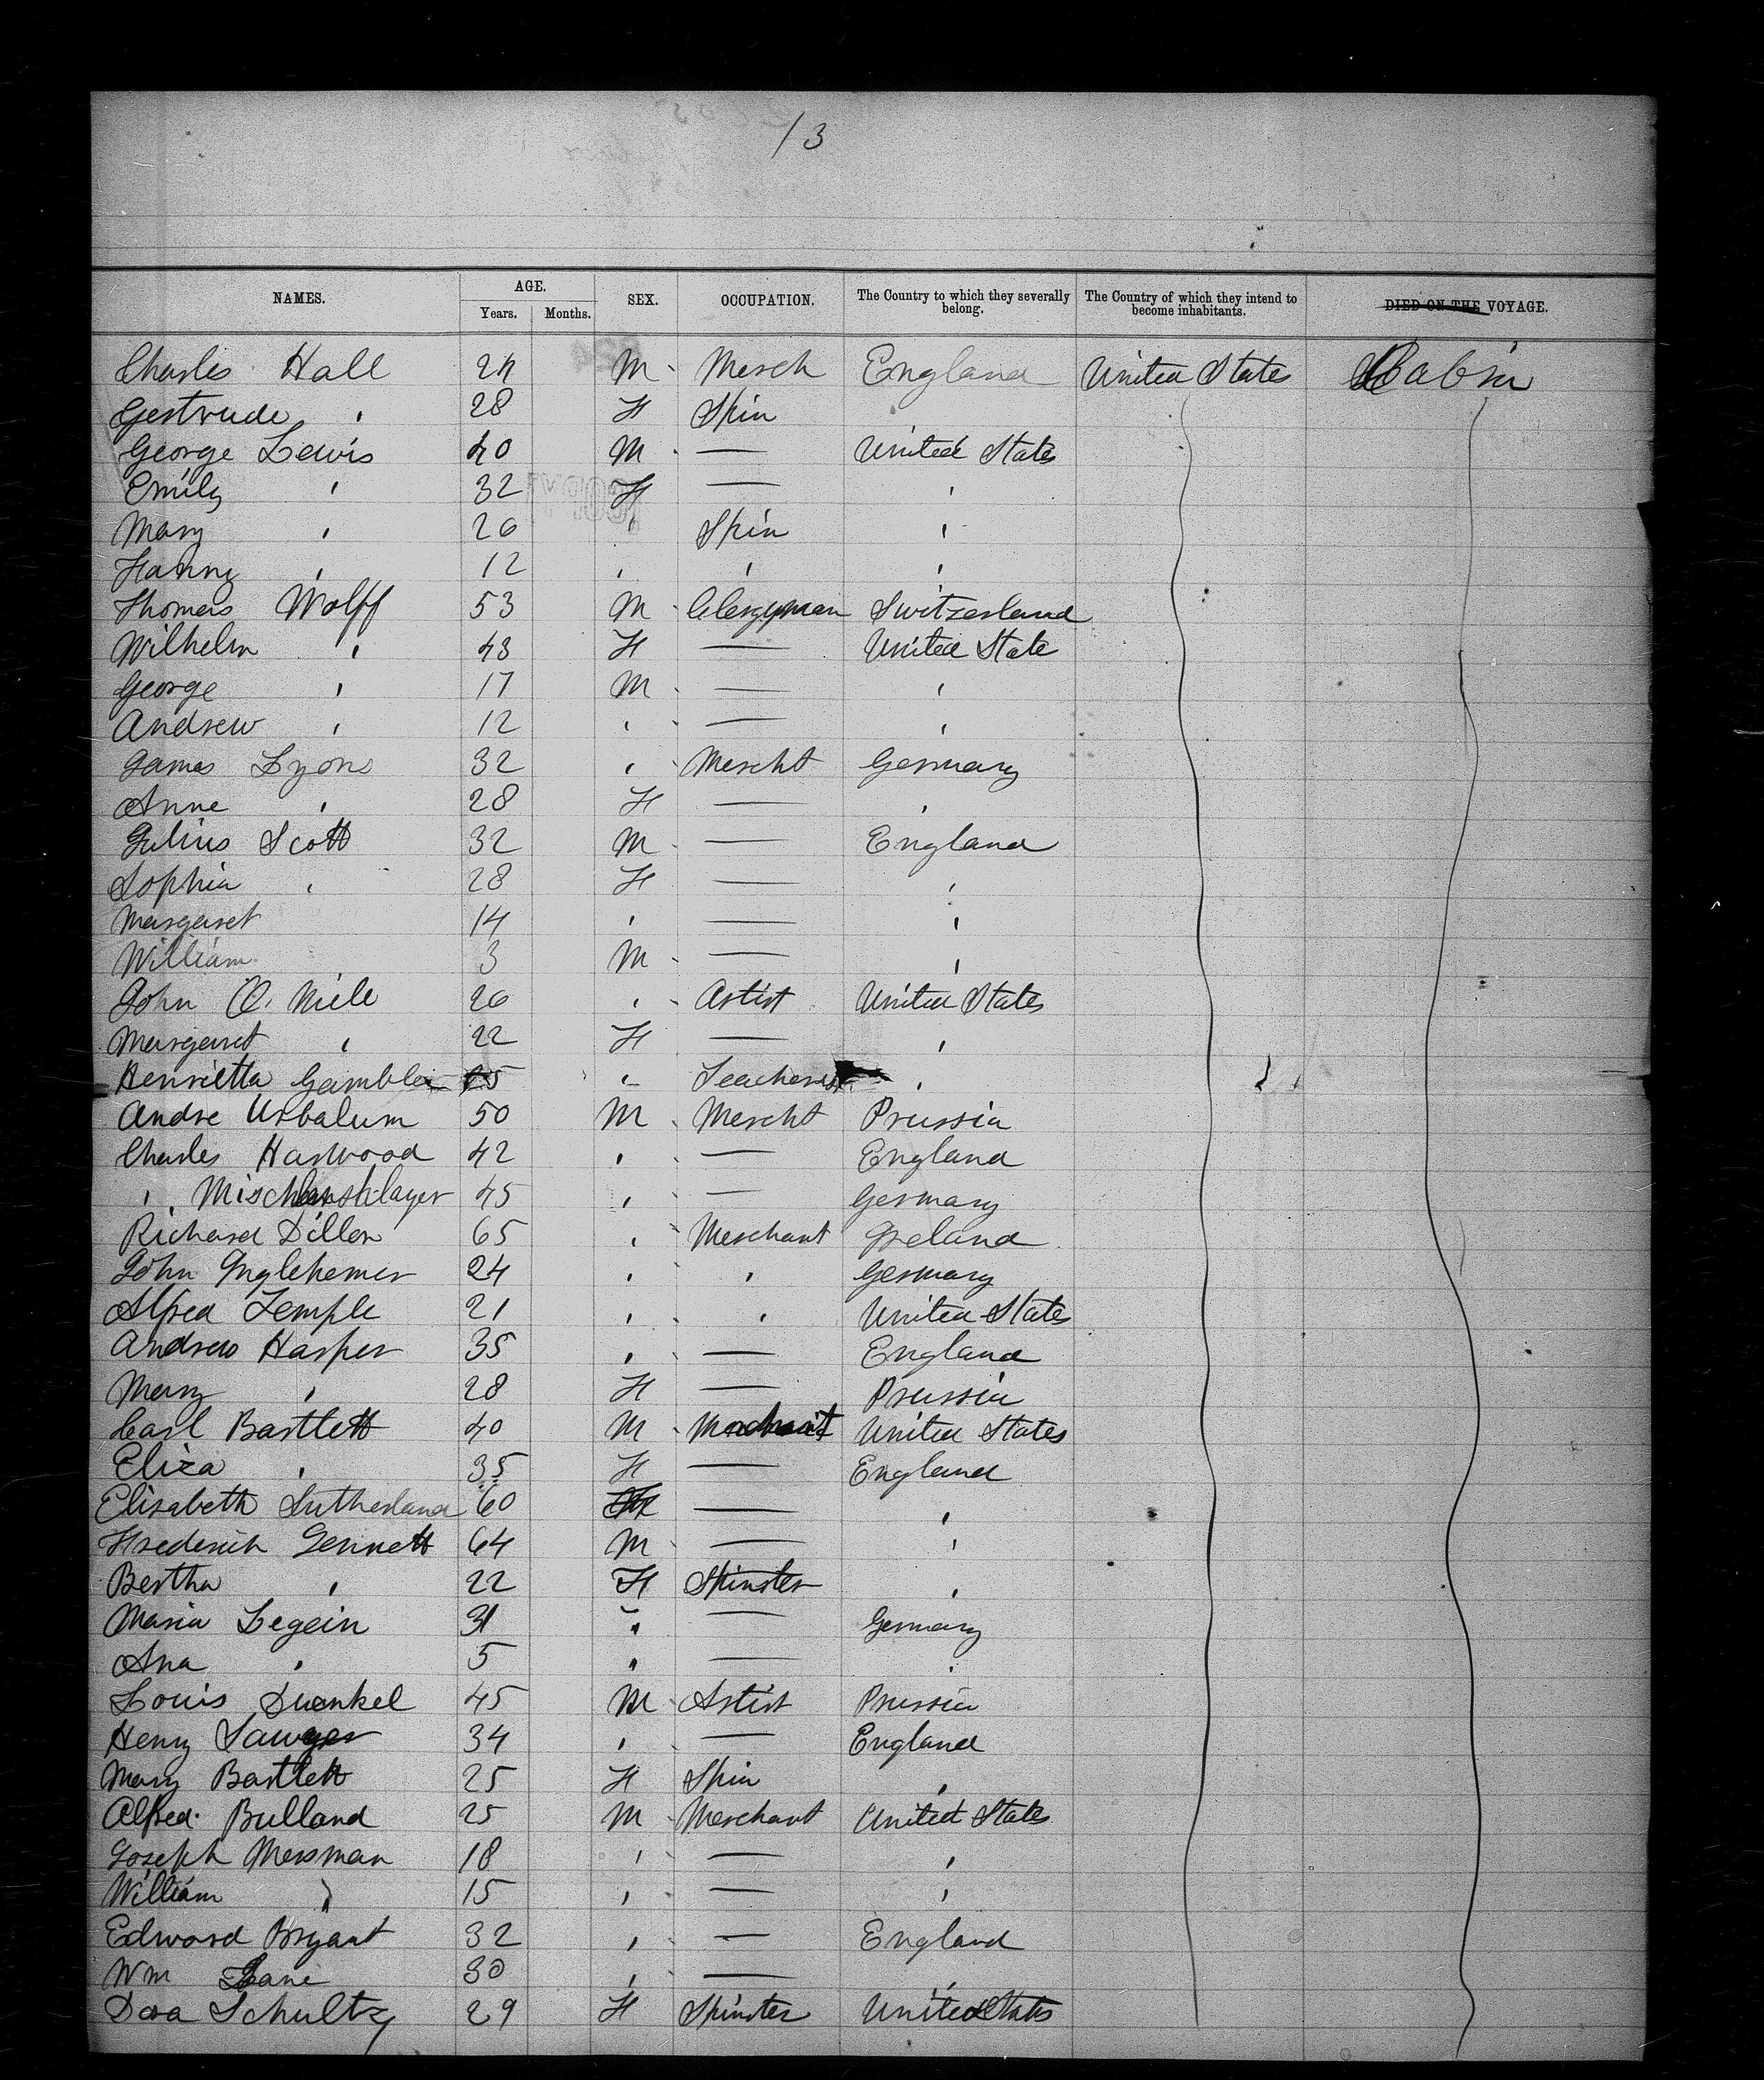 13
NAMES. AGE. SEX. OCCUPATION. The Country to which they severally belong. The Country of which they intend to become inhabitants. DIED ON THE VOYAGE.
Years. Months.
Charles Hall 24 M Merch England United States Cabin
Gertrude " 28 F Spin
George Lewis 40 M — United States
Emily " 32 F — "
Mary " 26 " Spin "
Fanny " 12 " " "
Thomas Wolff 53 M Clergyman Switzerland
Wilhelm " 43 F — United State
George " 17 M — "
Andrew " 12 " — "
James Lyons 32 " Mercht Germany
Anne " 28 F — "
Julius Scott 32 M — England
Sophia " 28 F — "
Margaret 14 " — "
William 3 M — "
John O. Niele 26 " Artist United States
Margaret " 22 F — "
Henrietta Gambler " "
Andre Urbalum 50 M Mercht Prussia
Charles Harwood 42 " — England
" 45 " — Germany
Richard Dillon 65 " Merchant Ireland
John Inglehemer 24 " " Germany
Alfred Temple 21 " " United States
Andrew Harper 35 " — England
Mary " 28 F — Prussia
Carl Bartlett 40 M Merchant United States
Eliza " 35 F — England
Elisabeth Sutherland 60 F — "
Frederich Gennett 64 M — "
Bertha " 22 F Spinster "
Maria Legein 31 " — Germany
Ana " 5 " — "
Louis Duenkel 45 M Artist Prussia
Henry Sawyer 34 " — England
Mary Bartlett 25 F Spin "
Alfred Bulland 25 M Merchant United States
Joseph Mersman 18 " — "
William " 15 " — "
Edward Bryant 32 " — England
Wm Lane 30 " — "
Dora Schultz 29 F Spinster United States